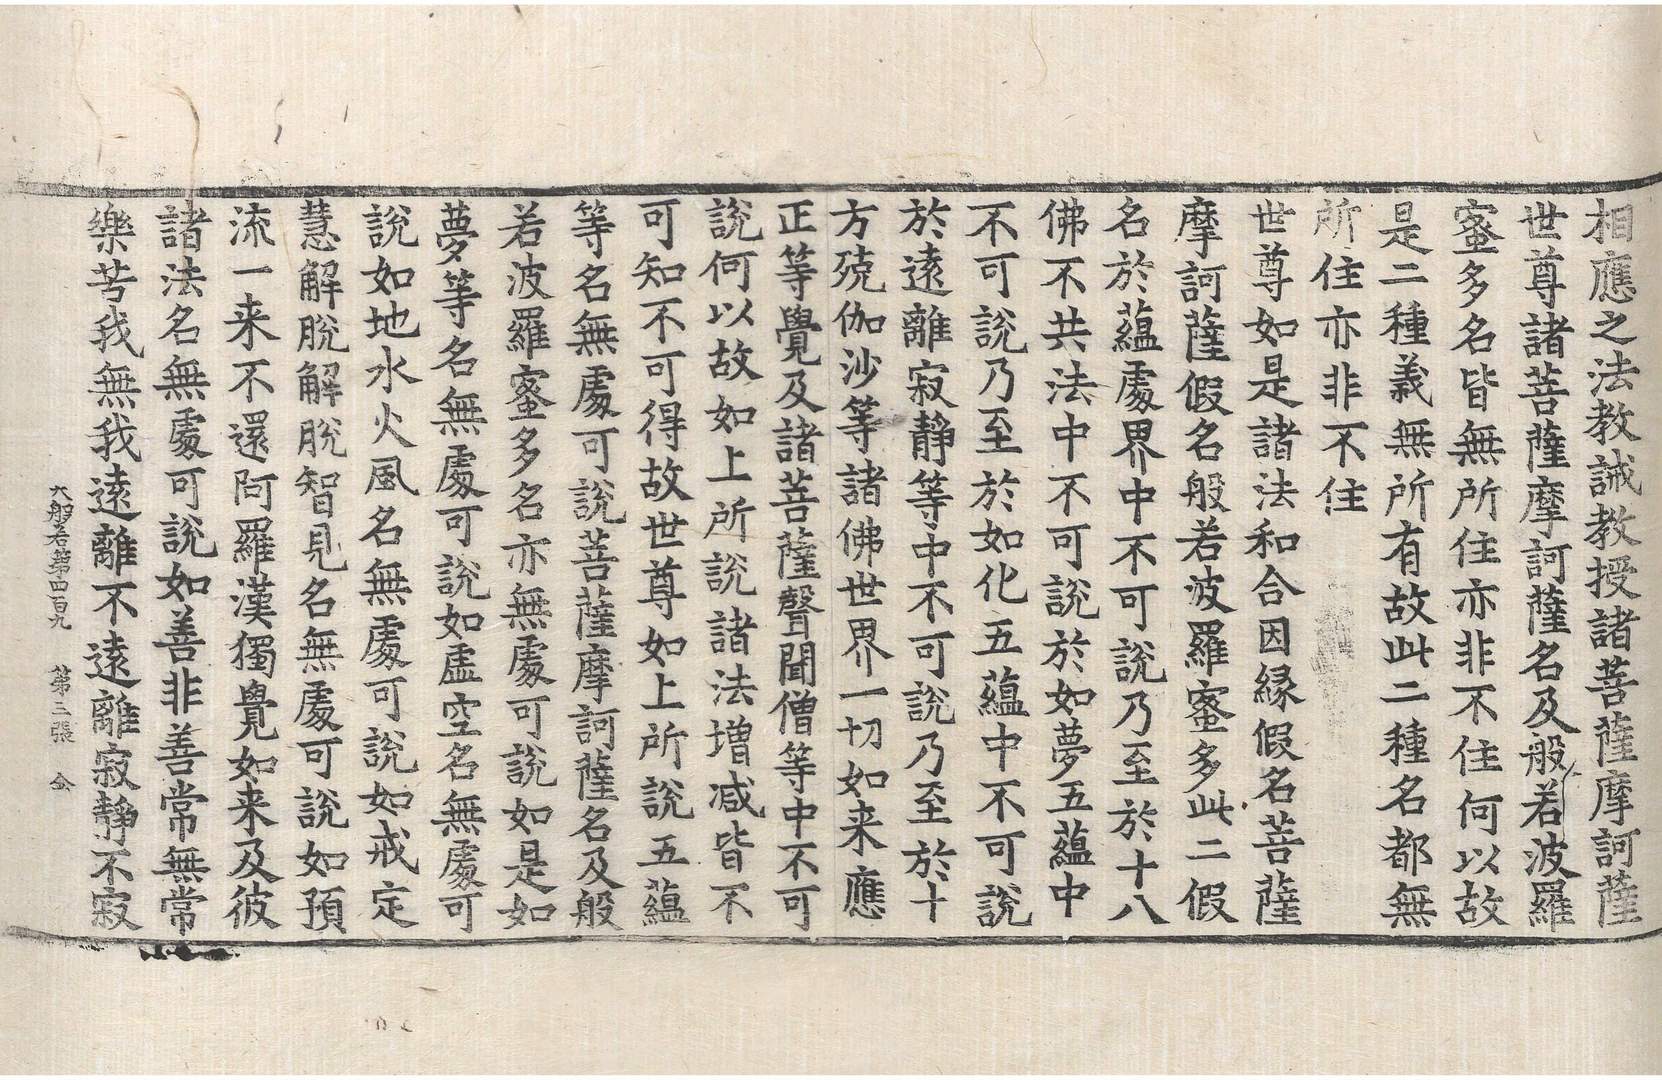 相應之法教誡教授諸菩薩摩訶薩
世尊諸菩薩摩訶薩名及般若波羅
蜜多名皆無所住亦非不住何以故
是二種義無所有故此二種名都無
所住亦非不住
世尊如是諸法和合因緣假名菩薩
摩訶薩假名般若波羅蜜多此二假
名於蘊處界中不可說乃至於十八
佛不共法中不可說於如夢五蘊中
不可說乃至於如化五蘊中不可說
於遠離寂靜等中不可說乃至於十
方殑伽沙等諸佛世界一切如来應
正等覺及諸菩薩聲聞僧等中不可
說何以故如上所說諸法增减皆不
可知不可得故世尊如上所說五蘊
等名無處可說菩薩摩訶薩名及般
若波羅蜜多名亦無處可說如是如
夢等名無處可說如虛空名無處可
說如地水火風名無處可說如戒定
慧解脫解脫智見名無處可說如預
流一来不還阿羅漢獨覺如来及彼
諸法名無處可說如善非善常無常
樂苦我無我遠離不遠離寂靜不寂
大般若第四百九　第三張　金